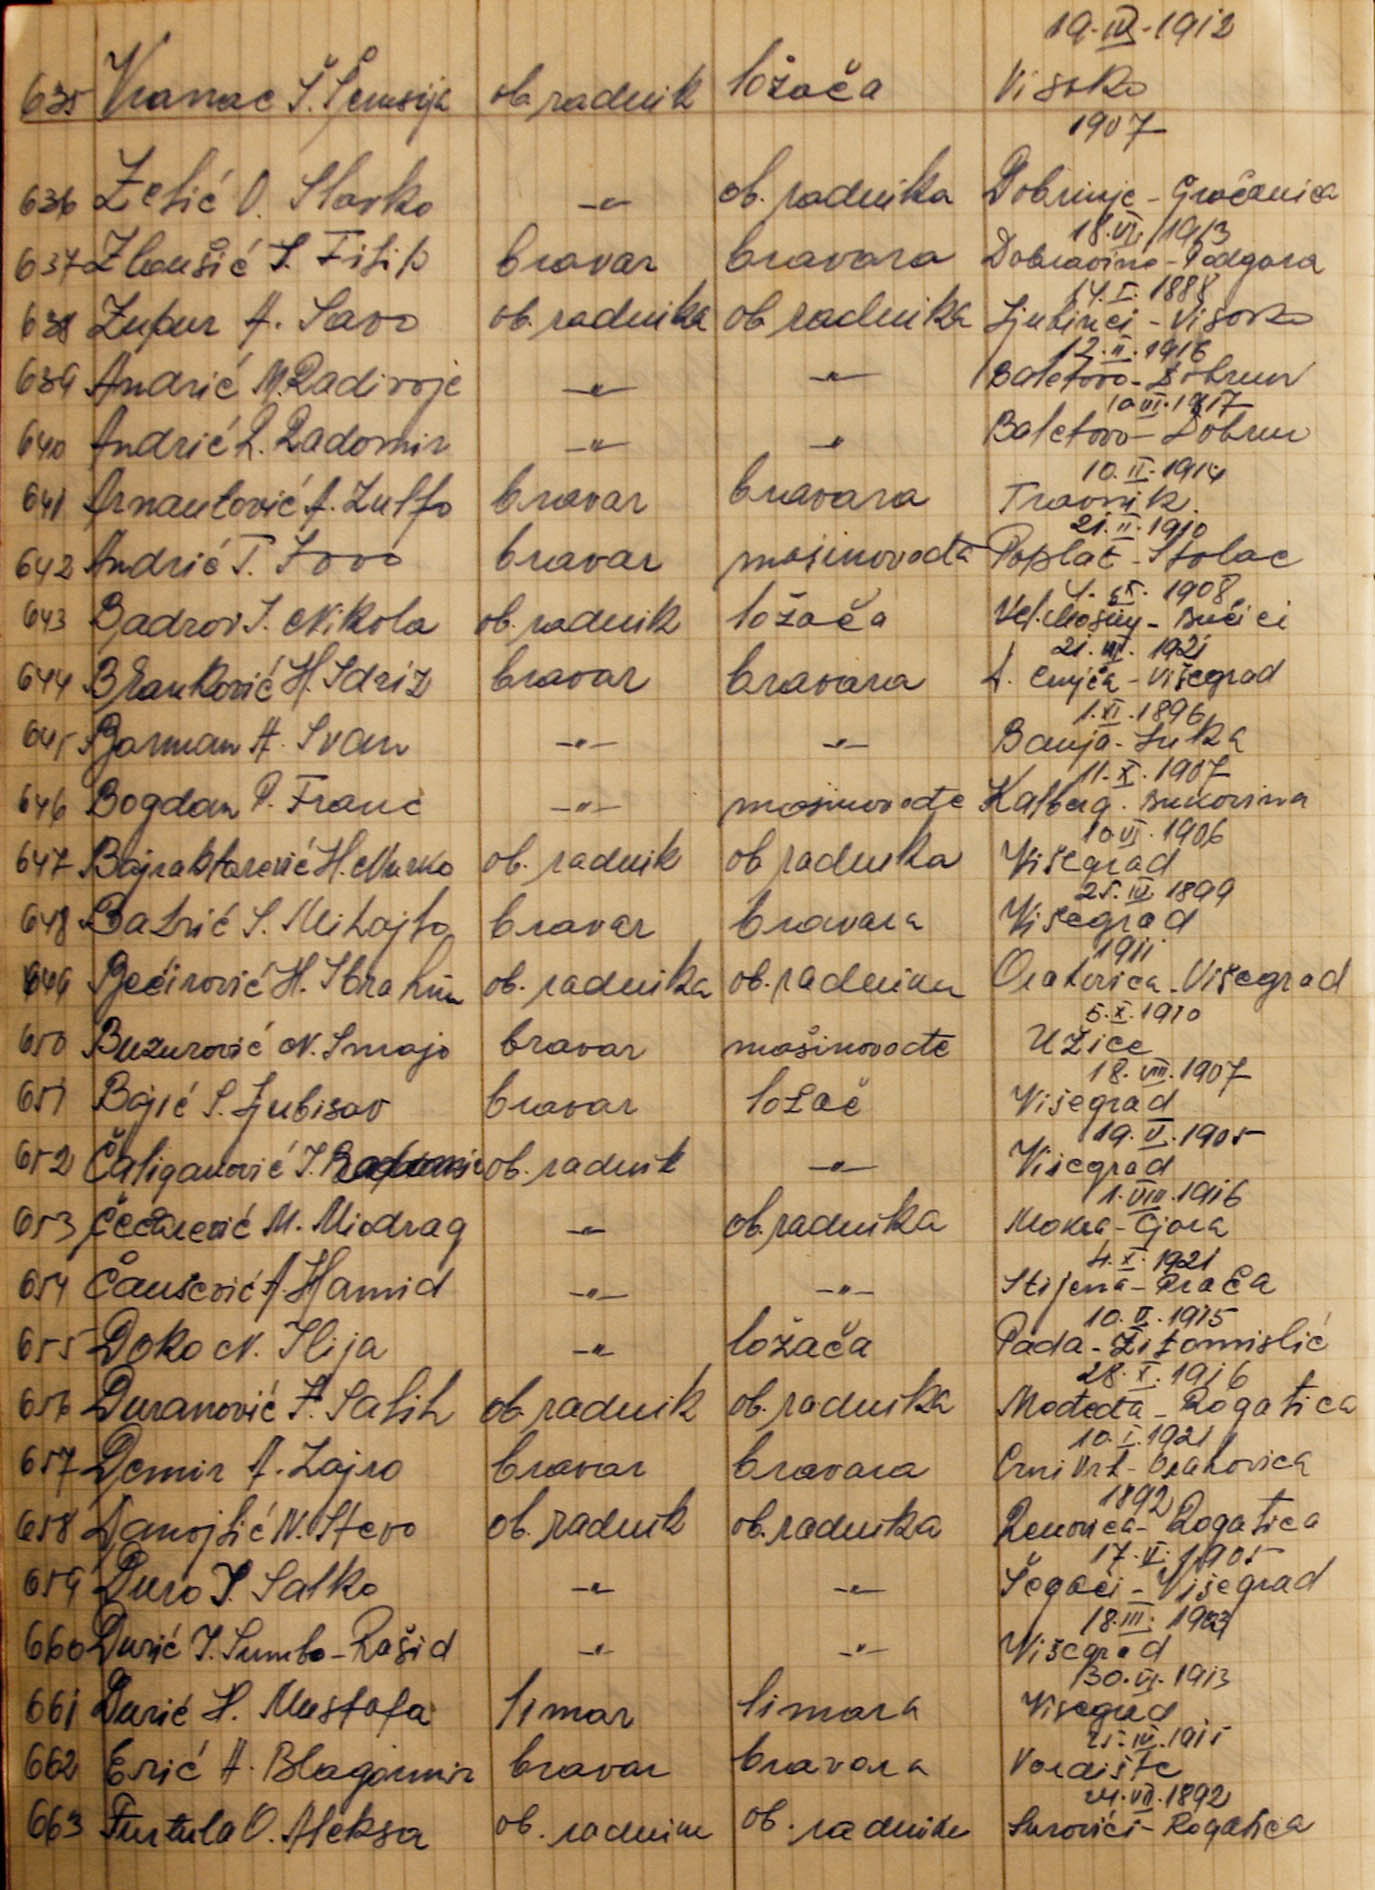 19.IV.1912
635 Vranac Š. Šemsija ob. radnik ložača Visoko
1907
636 Zelić O. Slavko -"- ob. radnika Dobrinje - Gračanica
18.VI.1913
637 Filip bravar bravara Dobravine - Podgora
14.I.1888
638 A. Savo ob. radnika ob radnika Ljubinci - Visoko
12.II.1916
639 Andrić M. Radivoje -"- -"- Baletovo - Dobrun
10.VI.1917
640 Andrić R. Radomir -"- -"- Baletovo - Dobrun
10.II.1914
641 Arnautović A. Zulfo bravar bravara Travnik.
21.II.1910
642 Andrić T. Jovo bravar mašinovođa Poplat - Stolac
1908
643 Badrov I. Nikola ob. radnik ložača Vel.
1921
644 Branković H. Idriz bravar bravara Višegrad
1.XI.1896
645 Borman A. Ivan -"- -"- Banja-Luka
11.X.1907
646 Bogdan P. Franc -"- mašinovođe Kalberg. Bukovina
10.VI.1906
647 Bajraktarević H. Murko ob. radnik ob radnika Višegrad
25.IV 1899
648 Batrić S. Mihajlo bravar bravara Višegrad
1911
649 Bećirović H. Ibrahim ob. radnika ob. radnika Orahovica - Višegrad
5.X.1910
650 Buzurović N. Smajo bravar mašinovođe Užice
18.VIII.1907
651 Bojić S. Ljubisav bravar ložač Višegrad
19.V.1905
652 Čaliganović J. ob. radnik -"- Višegrad
1.VIII.1916
653 Čečarević M. Miodrag -"- ob. radnika Mokra-Gora
4.X.1921
654 Čaušević A Hamid -"- -"- Stijena - Prača
10.V.1915
655 Doko N. Ilija -"- ložača Pada - Žitomislić
28.X.1916
656 Duranović F. Salih ob. radnik ob. radnika Međeđa - Rogatica
10.I.1921
657 Demir A. Zajro bravar bravara Crni Vrh - Orahovica
1892
658 Danojlić N. Stevo ob. radnik ob. radnika Renovica - Rogatica
17.V.1905
659 Đuro S. Salko -"- -"- Šegači - Višegrad
18.III.
660 Đurić J. Sumbo-Rašid -"- -"- Višegrad
30.VI.1913
661 Durić H. Mustafa limar limara Visegrad
25.IV.1915
662 Erić A. Blagomir bravar bravara Vardište
24.VII.1892
663 Furtula O. Aleksa ob. radnika ob. radnika Surovići - Rogatica